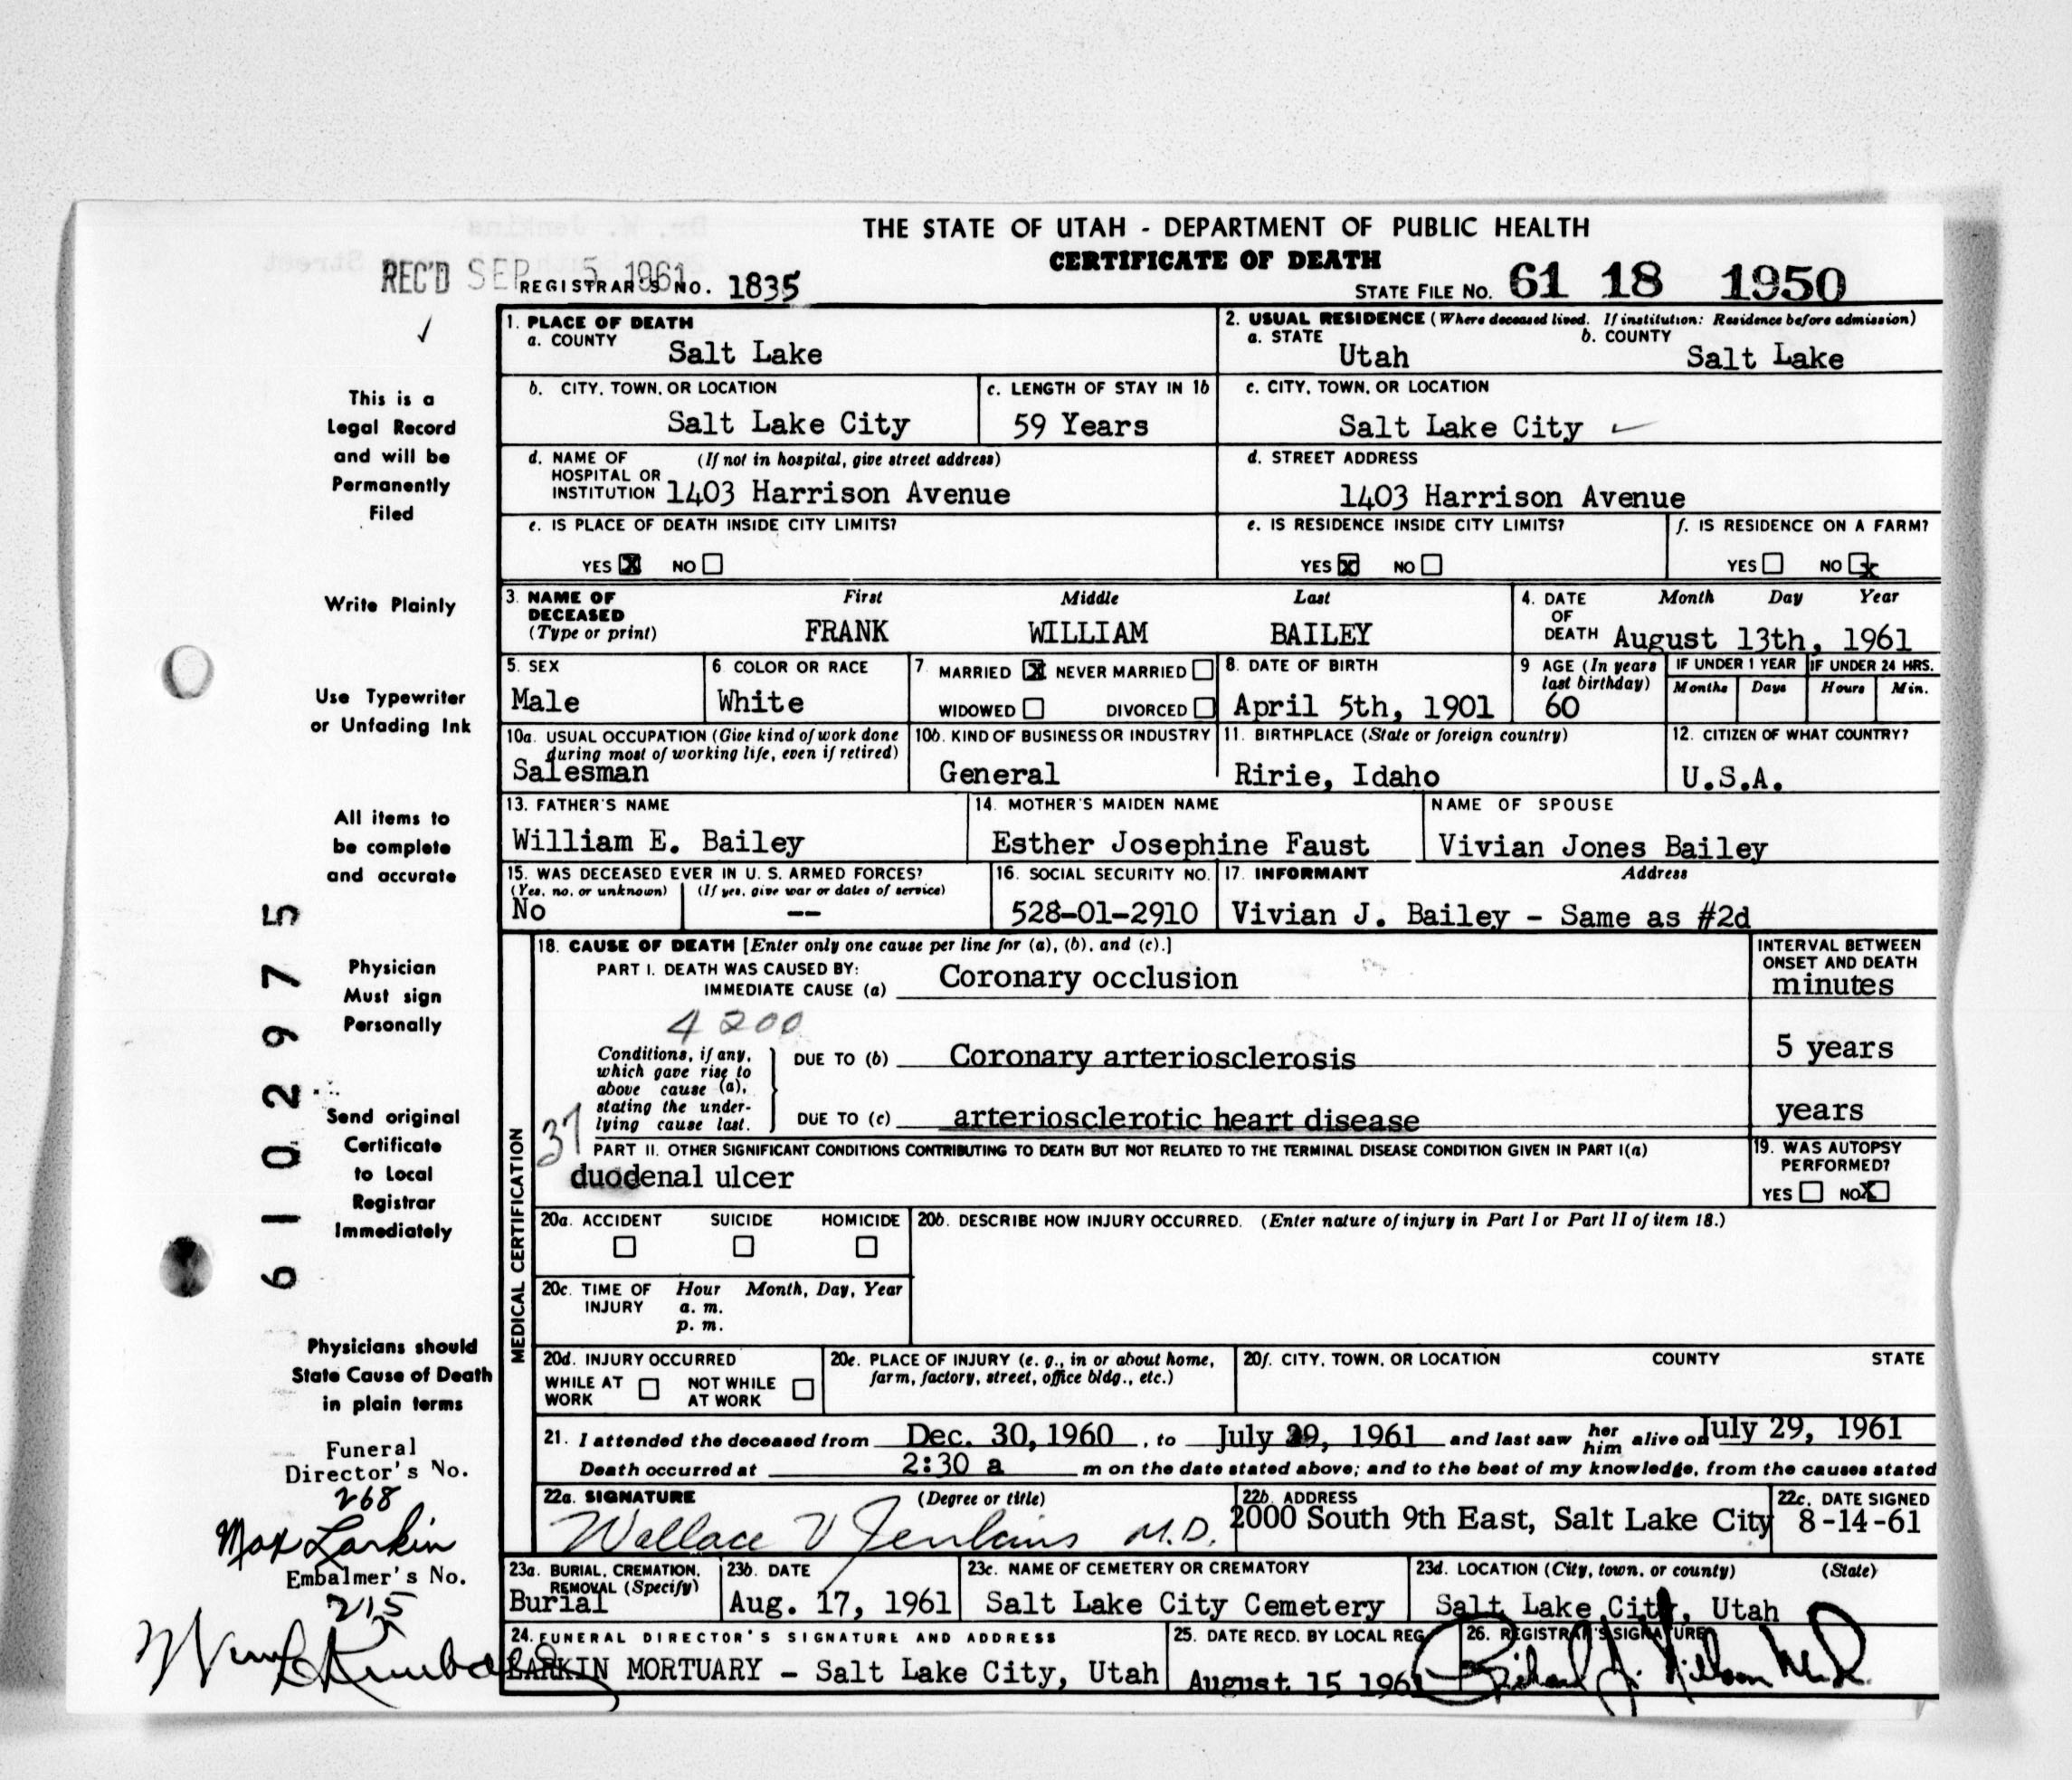 THE STATE OF UTAH - DEPARTMENT OF PUBLIC HEALTH
CERTIFICATE OF DEATH
REC'D SEP 5 1961
REGISTRAR'S NO. 1835
STATE FILE NO. 61 18 1950
1. PLACE OF DEATH
a. COUNTY
Salt Lake
2. USUAL RESIDENCE (Where deceased lived. If institution: Residence before admission)
a. STATE b. COUNTY
Utah Salt Lake
b. CITY, TOWN, OR LOCATION
Salt Lake City
c. LENGTH OF STAY IN 1b
59 Years
c. CITY, TOWN, OR LOCATION
Salt Lake City
d. NAME OF (If not in hospital, give street address)
HOSPITAL OR
INSTITUTION 1403 Harrison Avenue
d. STREET ADDRESS
1403 Harrison Avenue
e. IS PLACE OF DEATH INSIDE CITY LIMITS?
YES X NO
e. IS RESIDENCE INSIDE CITY LIMITS?
YES X NO
f. IS RESIDENCE ON A FARM?
YES NO X
3. NAME OF DECEASED (Type or print)
First Middle Last
FRANK WILLIAM BAILEY
4. DATE OF DEATH
Month Day Year
August 13th, 1961
5. SEX
Male
6 COLOR OR RACE
White
7. MARRIED X NEVER MARRIED
WIDOWED DIVORCED
8. DATE OF BIRTH
April 5th, 1901
9 AGE (In years last birthday)
60
IF UNDER 1 YEAR
Months Days
IF UNDER 24 HRS.
Hours Min.
10a. USUAL OCCUPATION (Give kind of work done
during most of working life, even if retired)
Salesman
10b. KIND OF BUSINESS OR INDUSTRY
General
11. BIRTHPLACE (State or foreign country)
Ririe, Idaho
12. CITIZEN OF WHAT COUNTRY?
U.S.A.
13. FATHER'S NAME
William E. Bailey
14. MOTHER'S MAIDEN NAME
Esther Josephine Faust
NAME OF SPOUSE
Vivian Jones Bailey
15. WAS DECEASED EVER IN U. S. ARMED FORCES?
(Yes, no, or unknown) (If yes, give war or dates of service)
No --
16. SOCIAL SECURITY NO.
528-01-2910
17. INFORMANT Address
Vivian J. Bailey - Same as #2d
MEDICAL CERTIFICATION
18. CAUSE OF DEATH [Enter only one cause per line for (a), (b), and (c).]
INTERVAL BETWEEN
ONSET AND DEATH
PART I. DEATH WAS CAUSED BY:
IMMEDIATE CAUSE (a) Coronary occlusion
minutes
4200
Conditions, if any,
which gave rise to
above cause (a),
stating the under-
lying cause last.
DUE TO (b) Coronary arteriosclerosis
5 years
DUE TO (c) arteriosclerotic heart disease
years
37
PART II. OTHER SIGNIFICANT CONDITIONS CONTRIBUTING TO DEATH BUT NOT RELATED TO THE TERMINAL DISEASE CONDITION GIVEN IN PART I(a)
duodenal ulcer
19. WAS AUTOPSY
PERFORMED?
YES NO X
20a. ACCIDENT SUICIDE HOMICIDE
20b. DESCRIBE HOW INJURY OCCURRED. (Enter nature of injury in Part I or Part II of item 18.)
20c. TIME OF INJURY
Hour Month, Day, Year
a. m.
p. m.
20d. INJURY OCCURRED
WHILE AT WORK NOT WHILE AT WORK
20e. PLACE OF INJURY (e. g., in or about home,
farm, factory, street, office bldg., etc.)
20f. CITY, TOWN, OR LOCATION COUNTY STATE
21. I attended the deceased from Dec. 30, 1960, to July 29, 1961 and last saw her him alive on July 29, 1961
Death occurred at 2:30 a m on the date stated above; and to the best of my knowledge, from the causes stated
22a. SIGNATURE (Degree or title)
Wallace V Jenkins M.D.
22b. ADDRESS
2000 South 9th East, Salt Lake City
22c. DATE SIGNED
8-14-61
23a. BURIAL, CREMATION,
REMOVAL (Specify)
Burial
23b. DATE
Aug. 17, 1961
23c. NAME OF CEMETERY OR CREMATORY
Salt Lake City Cemetery
23d. LOCATION (City, town, or county) (State)
Salt Lake City, Utah
24. FUNERAL DIRECTOR'S SIGNATURE AND ADDRESS
LARKIN MORTUARY - Salt Lake City, Utah
25. DATE RECD. BY LOCAL REG.
August 15 1961
26. REGISTRAR'S SIGNATURE
Richard J. Nilson M.D.
This is a
Legal Record
and will be
Permanently
Filed
Write Plainly
Use Typewriter
or Unfading Ink
All items to
be complete
and accurate
Physician
Must sign
Personally
Send original
Certificate
to Local
Registrar
Immediately
Physicians should
State Cause of Death
in plain terms
Funeral
Director's No.
268
Max Larkin
Embalmer's No.
215
6102975